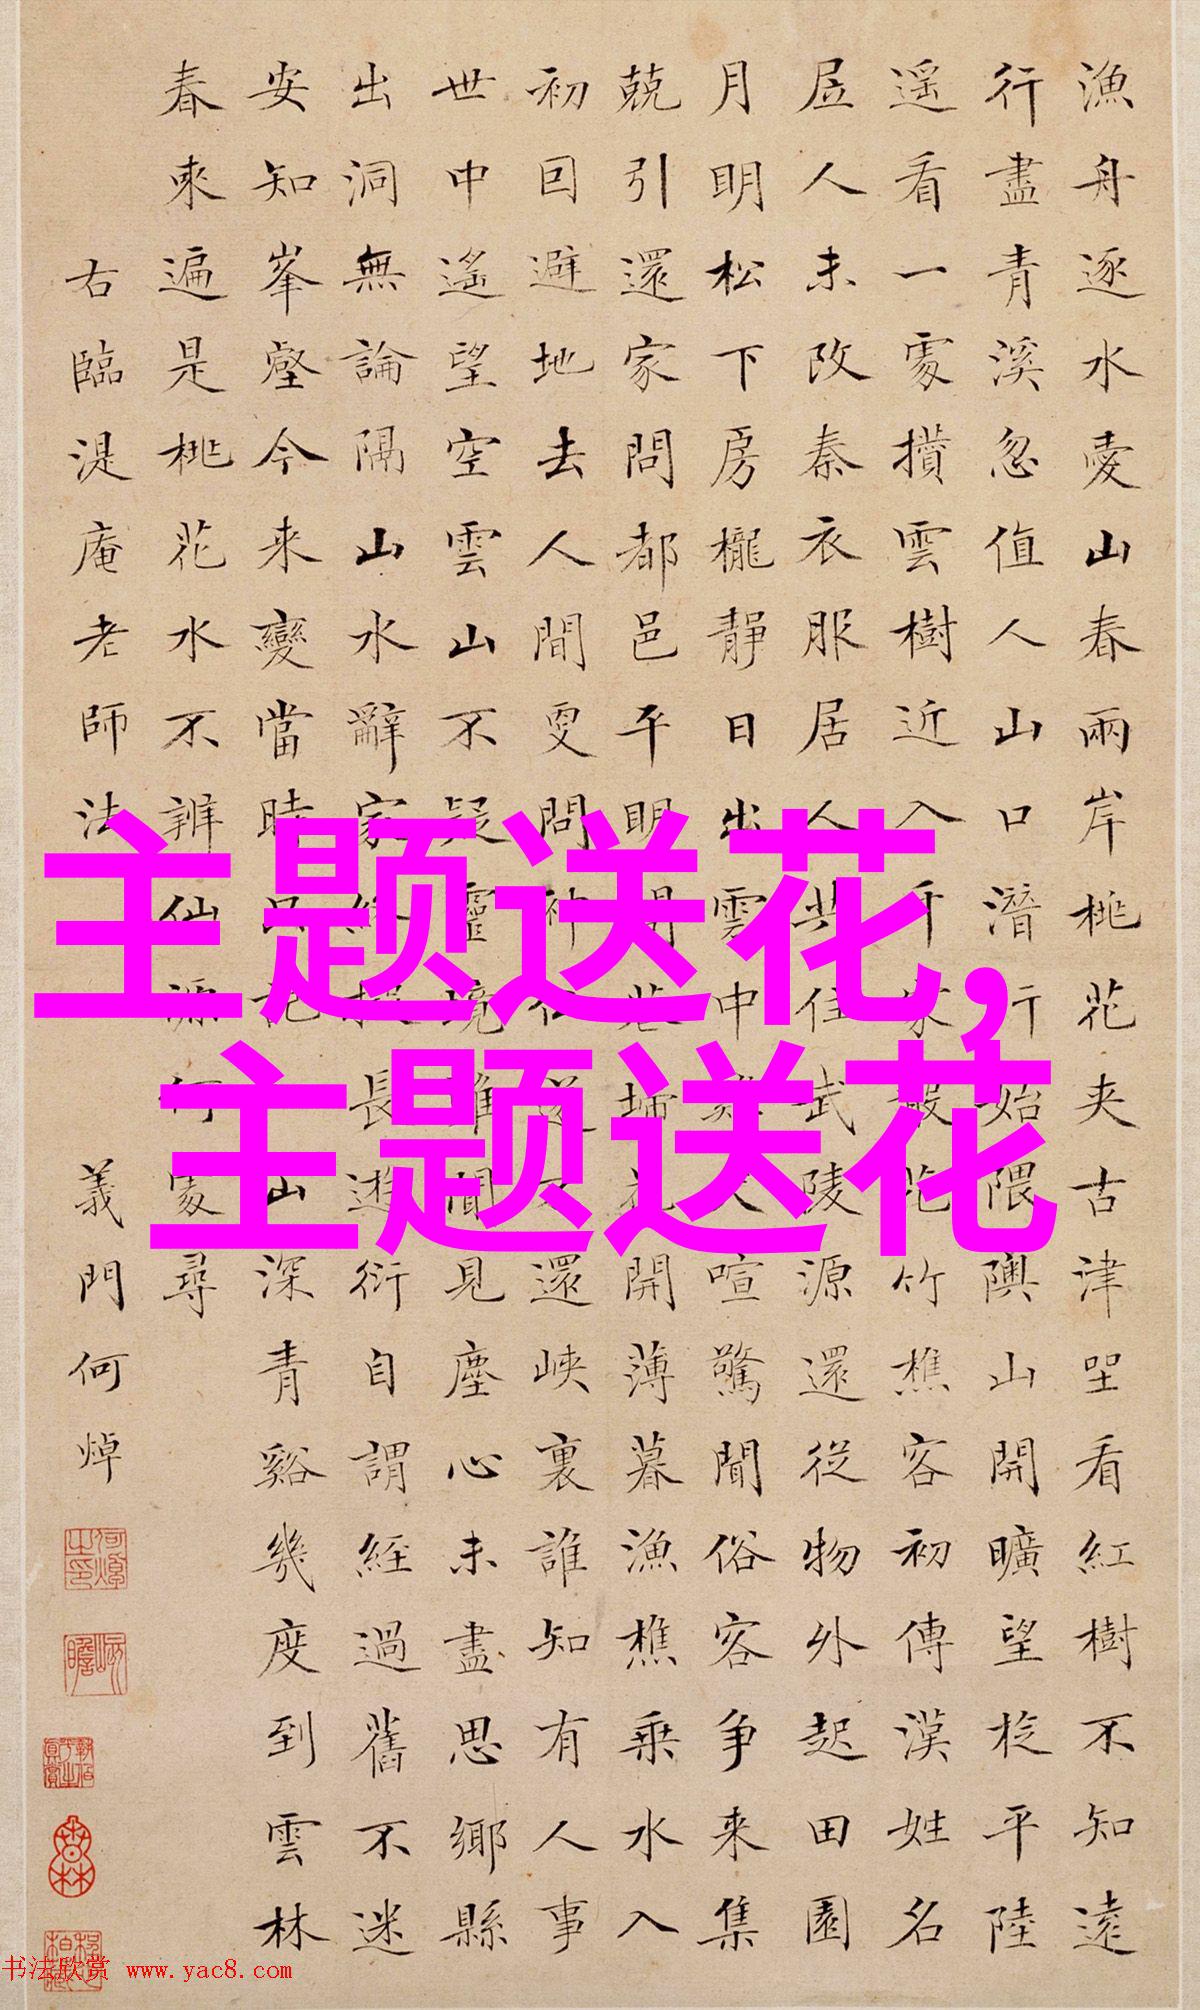 漁舟逐水愛山春兩岸桃花夾古津坐看紅樹不知遠
行盡青溪忽值人山口潛行始隈隩山開曠望旋平陸
遥看一處攢雲樹近入千家散花竹樵客初傳漢姓名
居人未改秦衣服居人共住武陵源還從物外起田園
月明松下房櫳靜日出雲中雞犬喧驚聞俗客爭来集
競引還家問都邑平明閭巷掃花開薄暮漁樵乗水入
初因避地去人間更問神仙遂不還峽裏誰知有人事
世中遙望空雲山不疑靈境難聞見塵心未盡思鄉縣
出洞無論隔山水辭家終擬長遊衍自謂經過舊不迷
安知峯壑今来變當時只記山深青谿幾度到雲林
春來遍是桃花水不辨仙源何處尋
右臨湜庵老師法 義門何焯
主题送花,
主题送花
书法欣赏 www.yac8.com